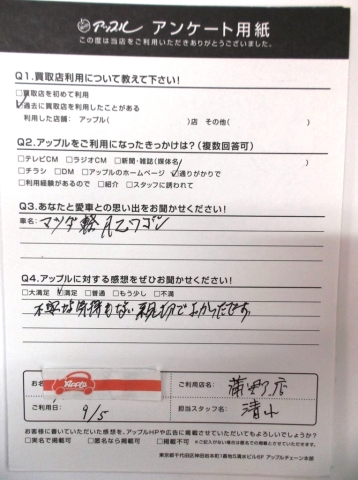 アップル アンケート用紙
この度は当店をご利用いただきありがとうございました。
Q1.買取店利用について教えて下さい!
□買取店を初めて利用
☑過去に買取店を利用したことがある
利用した店舗: アップル( )店 その他( )
Q2.アップルをご利用になったきっかけは?(複数回答可)
□テレビCM □ラジオCM □新聞・雑誌(媒体名 )
□チラシ □DM □アップルのホームページ ☑通りがかりで
□利用経験があるので □紹介 □スタッフに誘われて
Q3.あなたと愛車との思い出をお聞かせください!
車名: マツダ 軽 AZワゴン
Q4.アップルに対する感想をぜひお聞かせください!
□大満足 ☑満足 □普通 □もう少し □不満
不安な気持もない 親切でよかったです。
お名
Apple
ご利用店名: 蒲野店
ご利用日: 9/5
担当スタッフ名: 清水
お客様に書いていただいた感想を、アップルHPや広告に掲載させていただいてもよろしいでしょうか?
□実名で掲載可 □匿名なら掲載可 □掲載不可 ※ご記入がない場合は匿名での掲載とさせていただきます。
東京都千代田区神田鍛本町1番地5清水ビル6F アップルチェーン本部